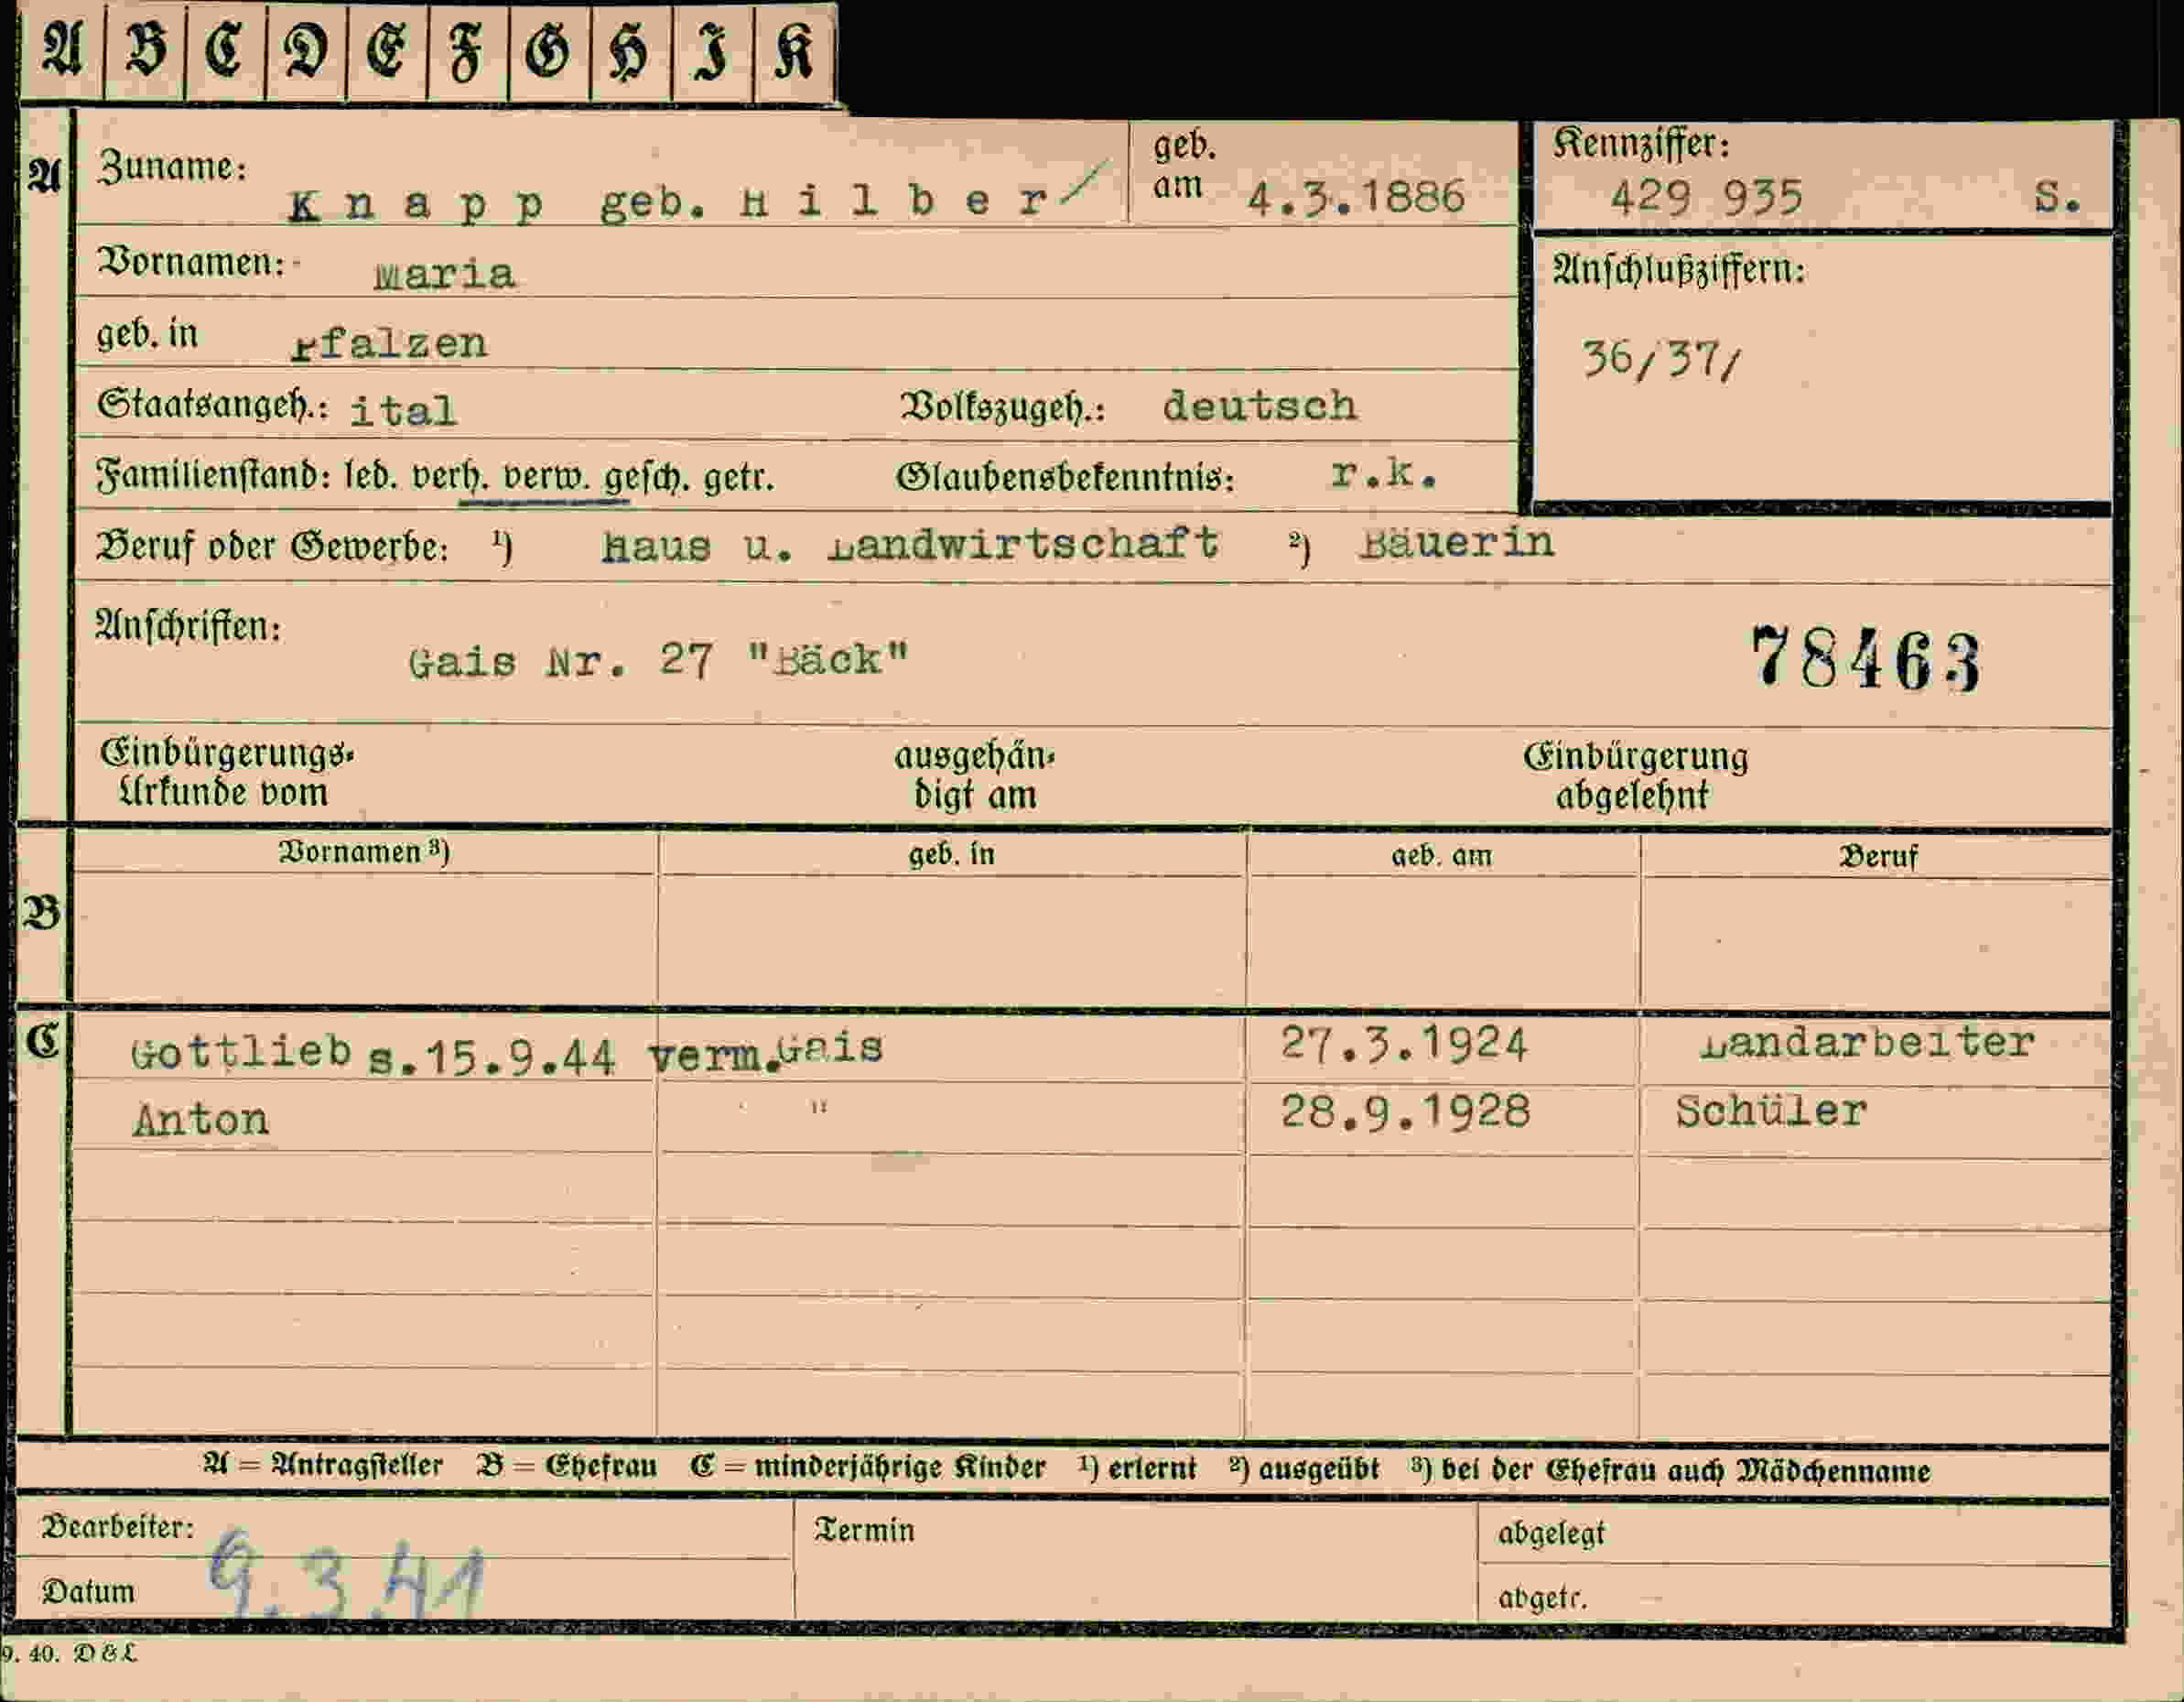 A B C D E F G H I K
A Zuname: Knapp geb. Hilber geb. am 4.3.1886 Kennziffer: 429 935 S.
Vornamen: Maria Anschlußziffern:
geb. in Pfalzen 36/37/
Staatsangeh.: ital Volkszugeh.: deutsch
Familienstand: led. verh. verw. gesch. getr. Glaubensbekenntnis: r.k.
Beruf oder Gewerbe: ¹) Haus u. Landwirtschaft ²) Bäuerin
Anschriften: Gais Nr. 27 "Bäck" 78463
Einbürgerungs- ausgehän- Einbürgerung
Urkunde vom digt am abgelehnt
Vornamen ³) geb. in geb. am Beruf
B
C Gottlieb s.15.9.44 verm. Gais 27.3.1924 Landarbeiter
Anton " 28.9.1928 Schüler
A = Antragsteller B = Ehefrau C = minderjährige Kinder ¹) erlernt ²) ausgeübt ³) bei der Ehefrau auch Mädchenname
Bearbeiter: Termin abgelegt
Datum 9.3.41 abgetr.
9. 40. D & L